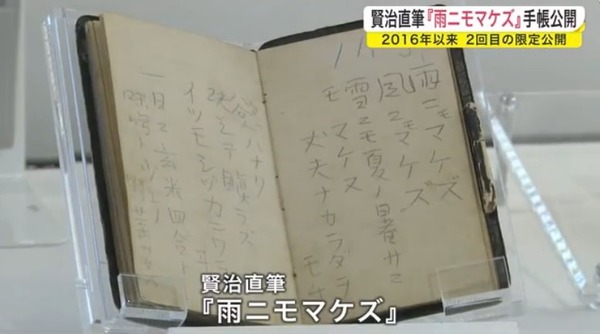 賢治直筆『雨ニモマケズ』手帳公開
2016年以来 2回目の限定公開
雨ニモマケズ
風ニモマケズ
雪ニモ夏ノ暑サニ
モ マケヌ
丈夫ナカラダヲ
モ
慾ハナク
決シテ瞋ラズ
イツモシヅカニワラ
一日ニ玄米四合ト
味噌ト少シノ
賢治直筆
『雨ニモマケズ』